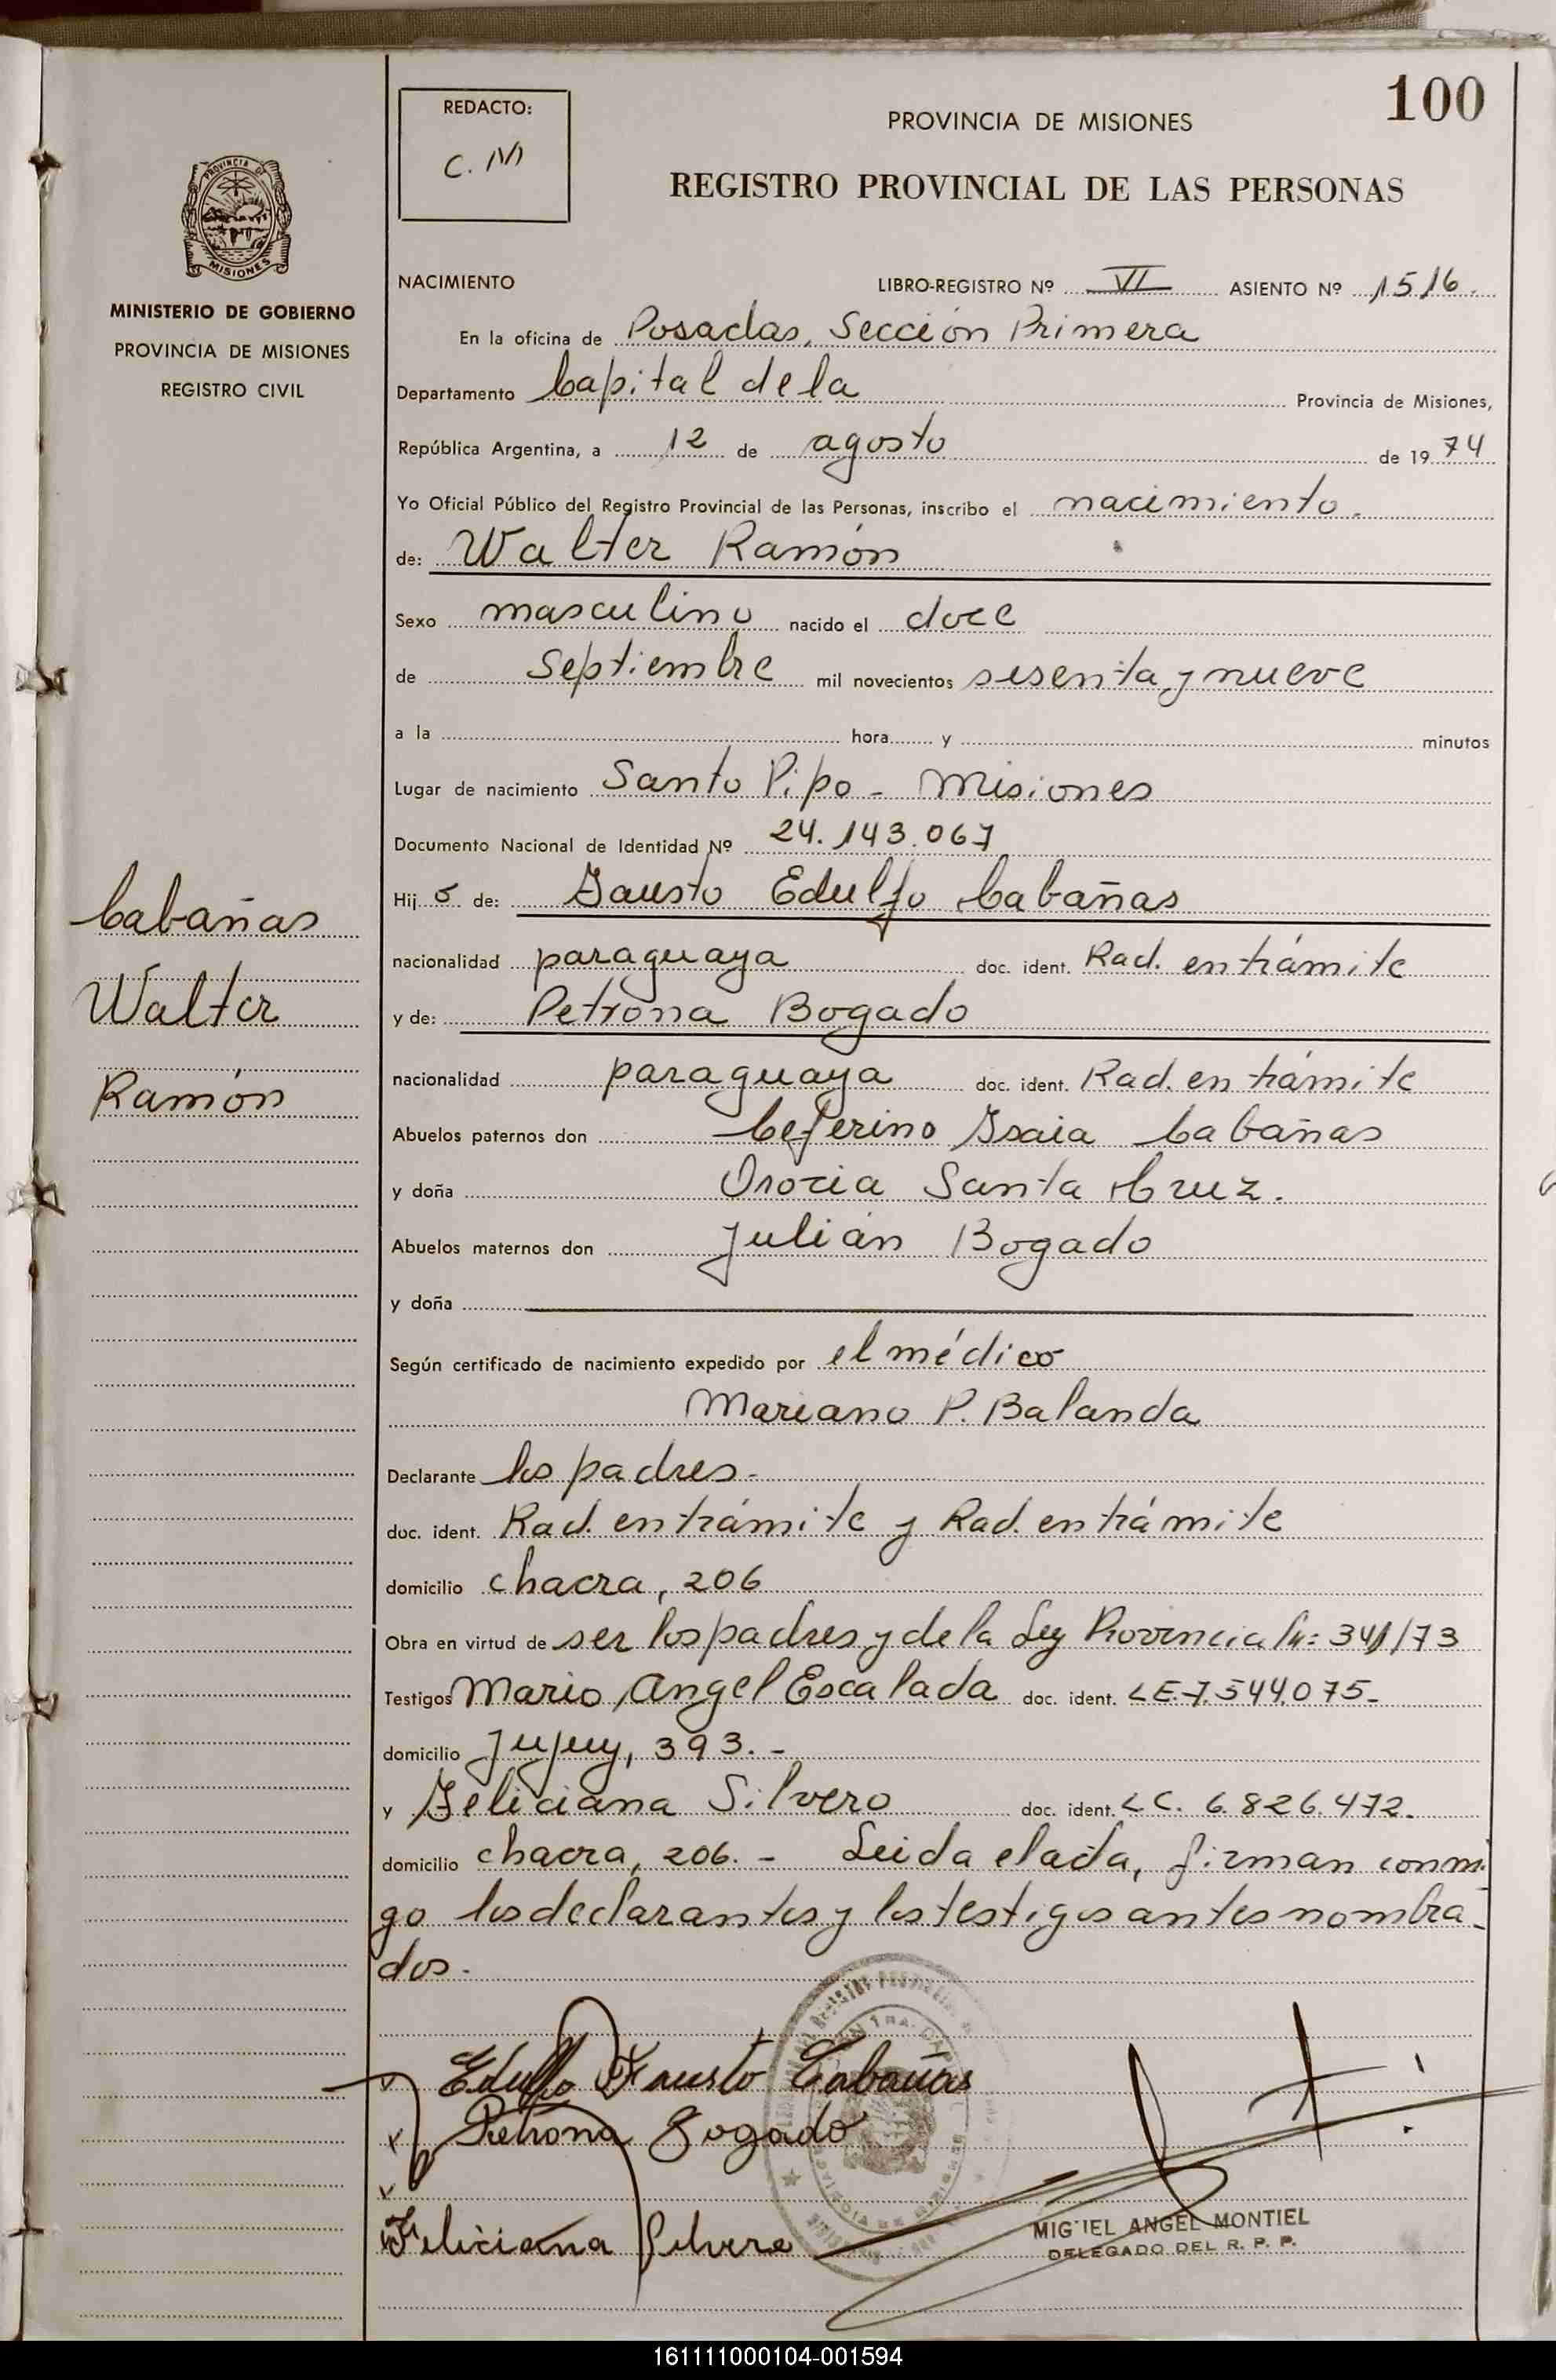 100
REDACTO:
C. M
PROVINCIA DE MISIONES
REGISTRO PROVINCIAL DE LAS PERSONAS
PROVINCIA DE
MISIONES
MINISTERIO DE GOBIERNO
PROVINCIA DE MISIONES
REGISTRO CIVIL
NACIMIENTO LIBRO-REGISTRO Nº VI ASIENTO Nº 1516.
En la oficina de Posadas, Sección Primera
Departamento Capital de la Provincia de Misiones,
República Argentina, a 12 de agosto de 1974
Yo Oficial Público del Registro Provincial de las Personas, inscribo el nacimiento.
de: Walter Ramón
Sexo masculino nacido el doce
de Septiembre mil novecientos sesenta y nueve
a la hora y minutos
Lugar de nacimiento Santo Pipo - Misiones
Documento Nacional de Identidad Nº 24.143.067
Hij o de: Fausto Edulfo Cabañas
nacionalidad paraguaya doc. ident. Rad. en trámite
y de: Petrona Bogado
nacionalidad paraguaya doc. ident. Rad. en trámite
Abuelos paternos don Ceferino Isaia Cabañas
y doña Santa Cruz.
Abuelos maternos don Julián Bogado
y doña
Según certificado de nacimiento expedido por el médico
Mariano P. Balanda
Declarante los padres-
doc. ident. Rad. en trámite y Rad. en trámite
domicilio chacra, 206
Obra en virtud de ser los padres y de la Ley Provincial Nº: 341/73
Testigos Mario Angel Escalada doc. ident. L.E. 7.544.075-
domicilio Jujuy, 393.-
y Feliciana Silvero doc. ident. L C. 6.826.472.
domicilio chacra, 206.- Leida el acta, firman conmi
go los declarantes y los testigos antes nombra-
dos.-
Cabañas
Walter
Ramón
Edulfo Fausto Cabañas
Petrona Bogado
Feliciana Silvero
MIGUEL ANGEL MONTIEL
DELEGADO DEL R. P. P.
161111000104-001594